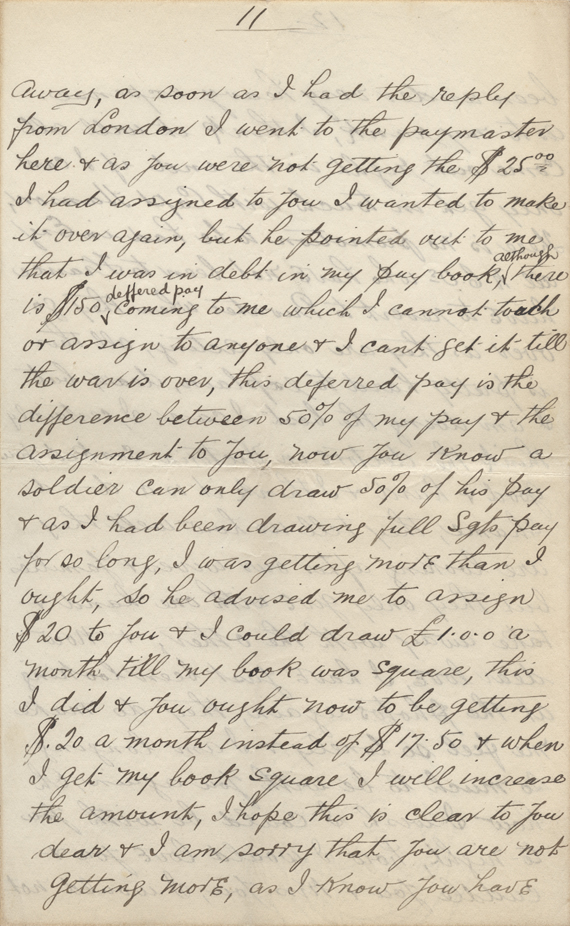 11
away, as soon as I had the reply
from London I went to the paymaster
here & as you were not getting the $25.00
I had assigned to you I wanted to make
it over again, but he pointed out to me
that I was in debt in my pay book, although there
is $150, deffered pay coming to me which I cannot touch
or assign to anyone & I cant get it till
the war is over, this deferred pay is the
difference between 50% of my pay & the
assignment to you, now you know a
soldier can only draw 50% of his pay
& as I had been drawing full Sgts pay
for so long, I was getting more than I
ought, so he advised me to assign
$20 to you & I could draw £1.0.0 a
month till my book was square, this
I did & you ought now to be getting
$.20 a month instead of $17.50 & when
I get my book square I will increase
the amount, I hope this is clear to you
dear & I am sorry that you are not
getting more, as I know you have